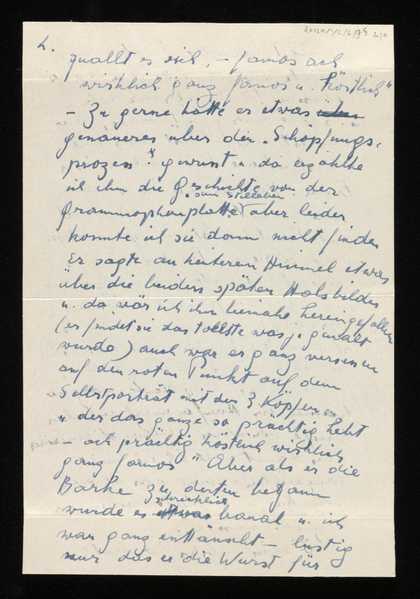 4.
quallt es sich, – famos ach
wirklich ganz famos u. köstlich"
– Zu gerne hätte er etwas
genaueres über den „Schöpfungs-
prozess" gewusst u. da erzählte
ich ihm die Geschichte von der
Grammophonplatte aber leider
konnte ich sie dann nicht finden
Er sagte an heiterem Himmel etwas
über die beiden späten Holsbilder
u. da wär ich ihm beinahe hereingefallen
(er findet sie das tollste was je gemalt
wurde) auch war er ganz versessen
auf den roten Punkt auf dem
Selbstporträt mit den 3 Köpfen
u der das ganze so prächtig hebt
– ach prächtig köstlich wirklich
ganz famos" Aber als er die
Barke zu deuten begann
wurde es schrecklich banal u. ich
war ganz enttäuscht – lustig
nur das er die Wurst für